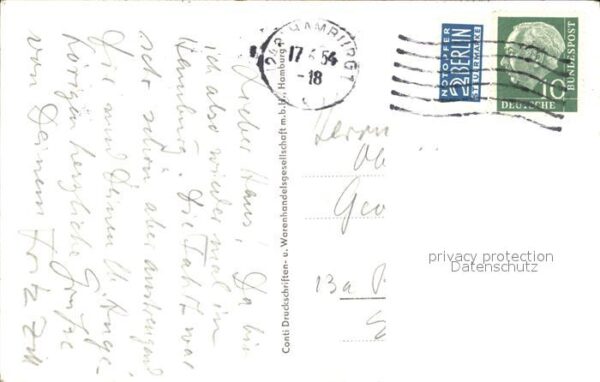 Lieber Hans! Da bin
ich also wieder mal in
Hamburg. Die Fahrt war
sehr schön aber anstrengend
Dir und Deinen lb. Ange-
hörigen herzliche Grüße
von Deinem Fritz
Conti Druckschriften- u. Warenhandelsgesellschaft m.b.H., Hamburg
HAMBURG 1
17
54
-18
NOTOPFER
2 BERLIN
STEUERMARKE
10
DEUTSCHE
BUNDESPOST
Herrn
Ob
Geo
13a
privacy protection
Datenschutz